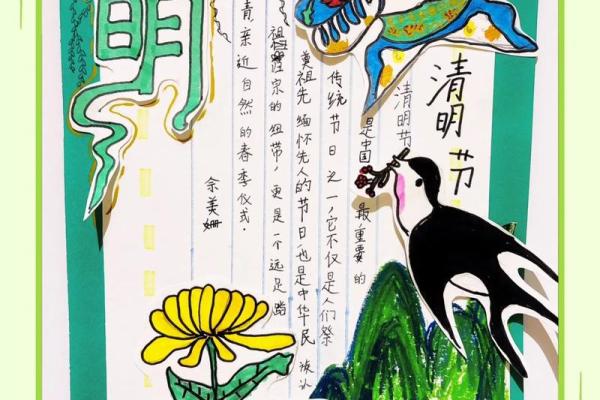 清明节
清明节
是中国
最重要的
传统节日之一,它不仅是人们祭
奠祖先 缅怀先人的节日,也是中华民族认
祖宗的纽带,更是一个远足踏
青,亲近自然的春季仪式.
余美姗
明